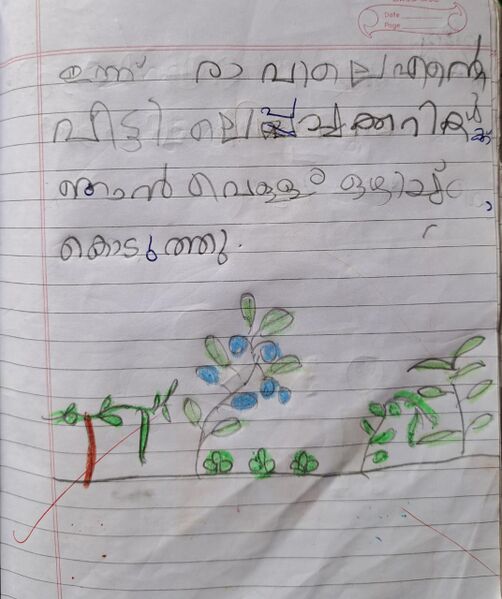 Date
Page
ഇന്ന് രാവിലെ എന്റെ
വീട്ടിലെ പച്ചക്കറികൾക്ക്
ഞാൻ വെള്ളം ഒഴിച്ചു
കൊടുത്തു.